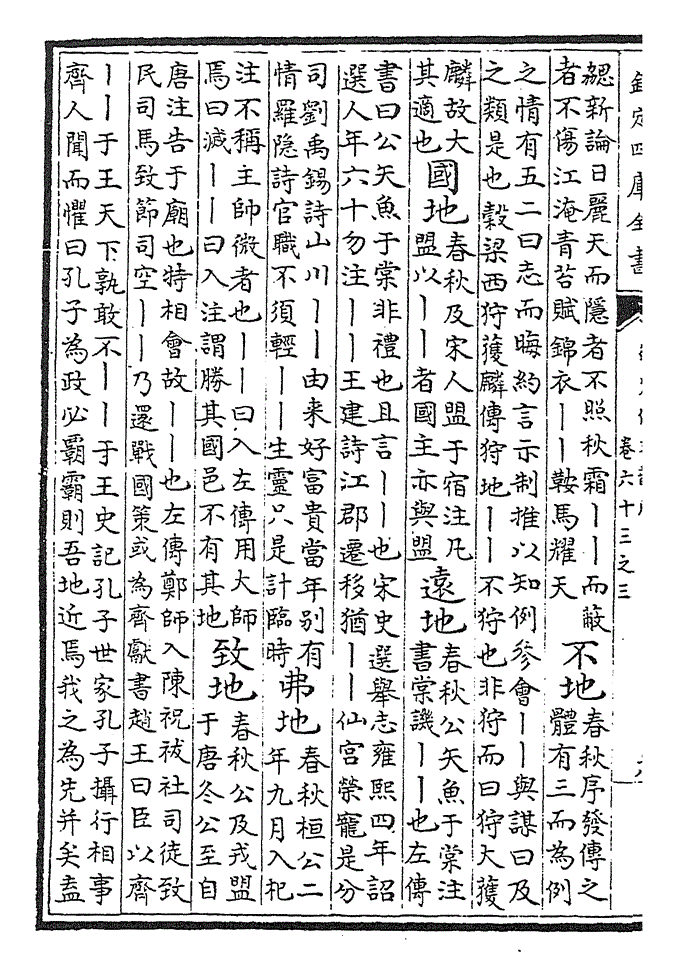 欽定四庫全書
卷六十三之三
勰新論日麗天而隱者不照秋霜丨丨而蔽
者不傷江淹青苔賦錦衣丨丨鞍馬耀天
不地
春秋序發傳之
體有三而為例
之情有五二曰志而晦約言示制推以知例參會丨丨與謀曰及
之類是也穀梁西狩獲麟傳狩地丨丨不狩也非狩而曰狩大獲
麟故大
其適也
國地
春秋及宋人盟于宿注凡
盟以丨丨者國主亦與盟
遠地
春秋公矢魚于棠注
書棠譏丨丨也左傳
書曰公矢魚于棠非禮也且言丨丨也宋史選舉志雍熙四年詔
選人年六十勿注丨丨王建詩江郡遷移猶丨丨仙宮榮寵是分
司劉禹錫詩山川丨丨由来好富貴當年别有
情羅隐詩官職不須輕丨丨生靈只是計臨時
弗地
春秋桓公二
年九月入杞
注不稱主帥微者也丨丨曰入左傳用大師
焉曰滅丨丨曰入注謂勝其國邑不有其地
致地
春秋公及戎盟
于唐冬公至自
唐注告于廟也特相會故丨丨也左傳鄭師入陳祝祓社司徒致
民司馬致節司空丨丨乃還戰國策或為齊獻書趙王曰臣以齊
丨丨于王天下孰敢不丨丨于王史記孔子世家孔子攝行相事
齊人聞而懼曰孔子為政必霸霸則吾地近焉我之為先并矣盍